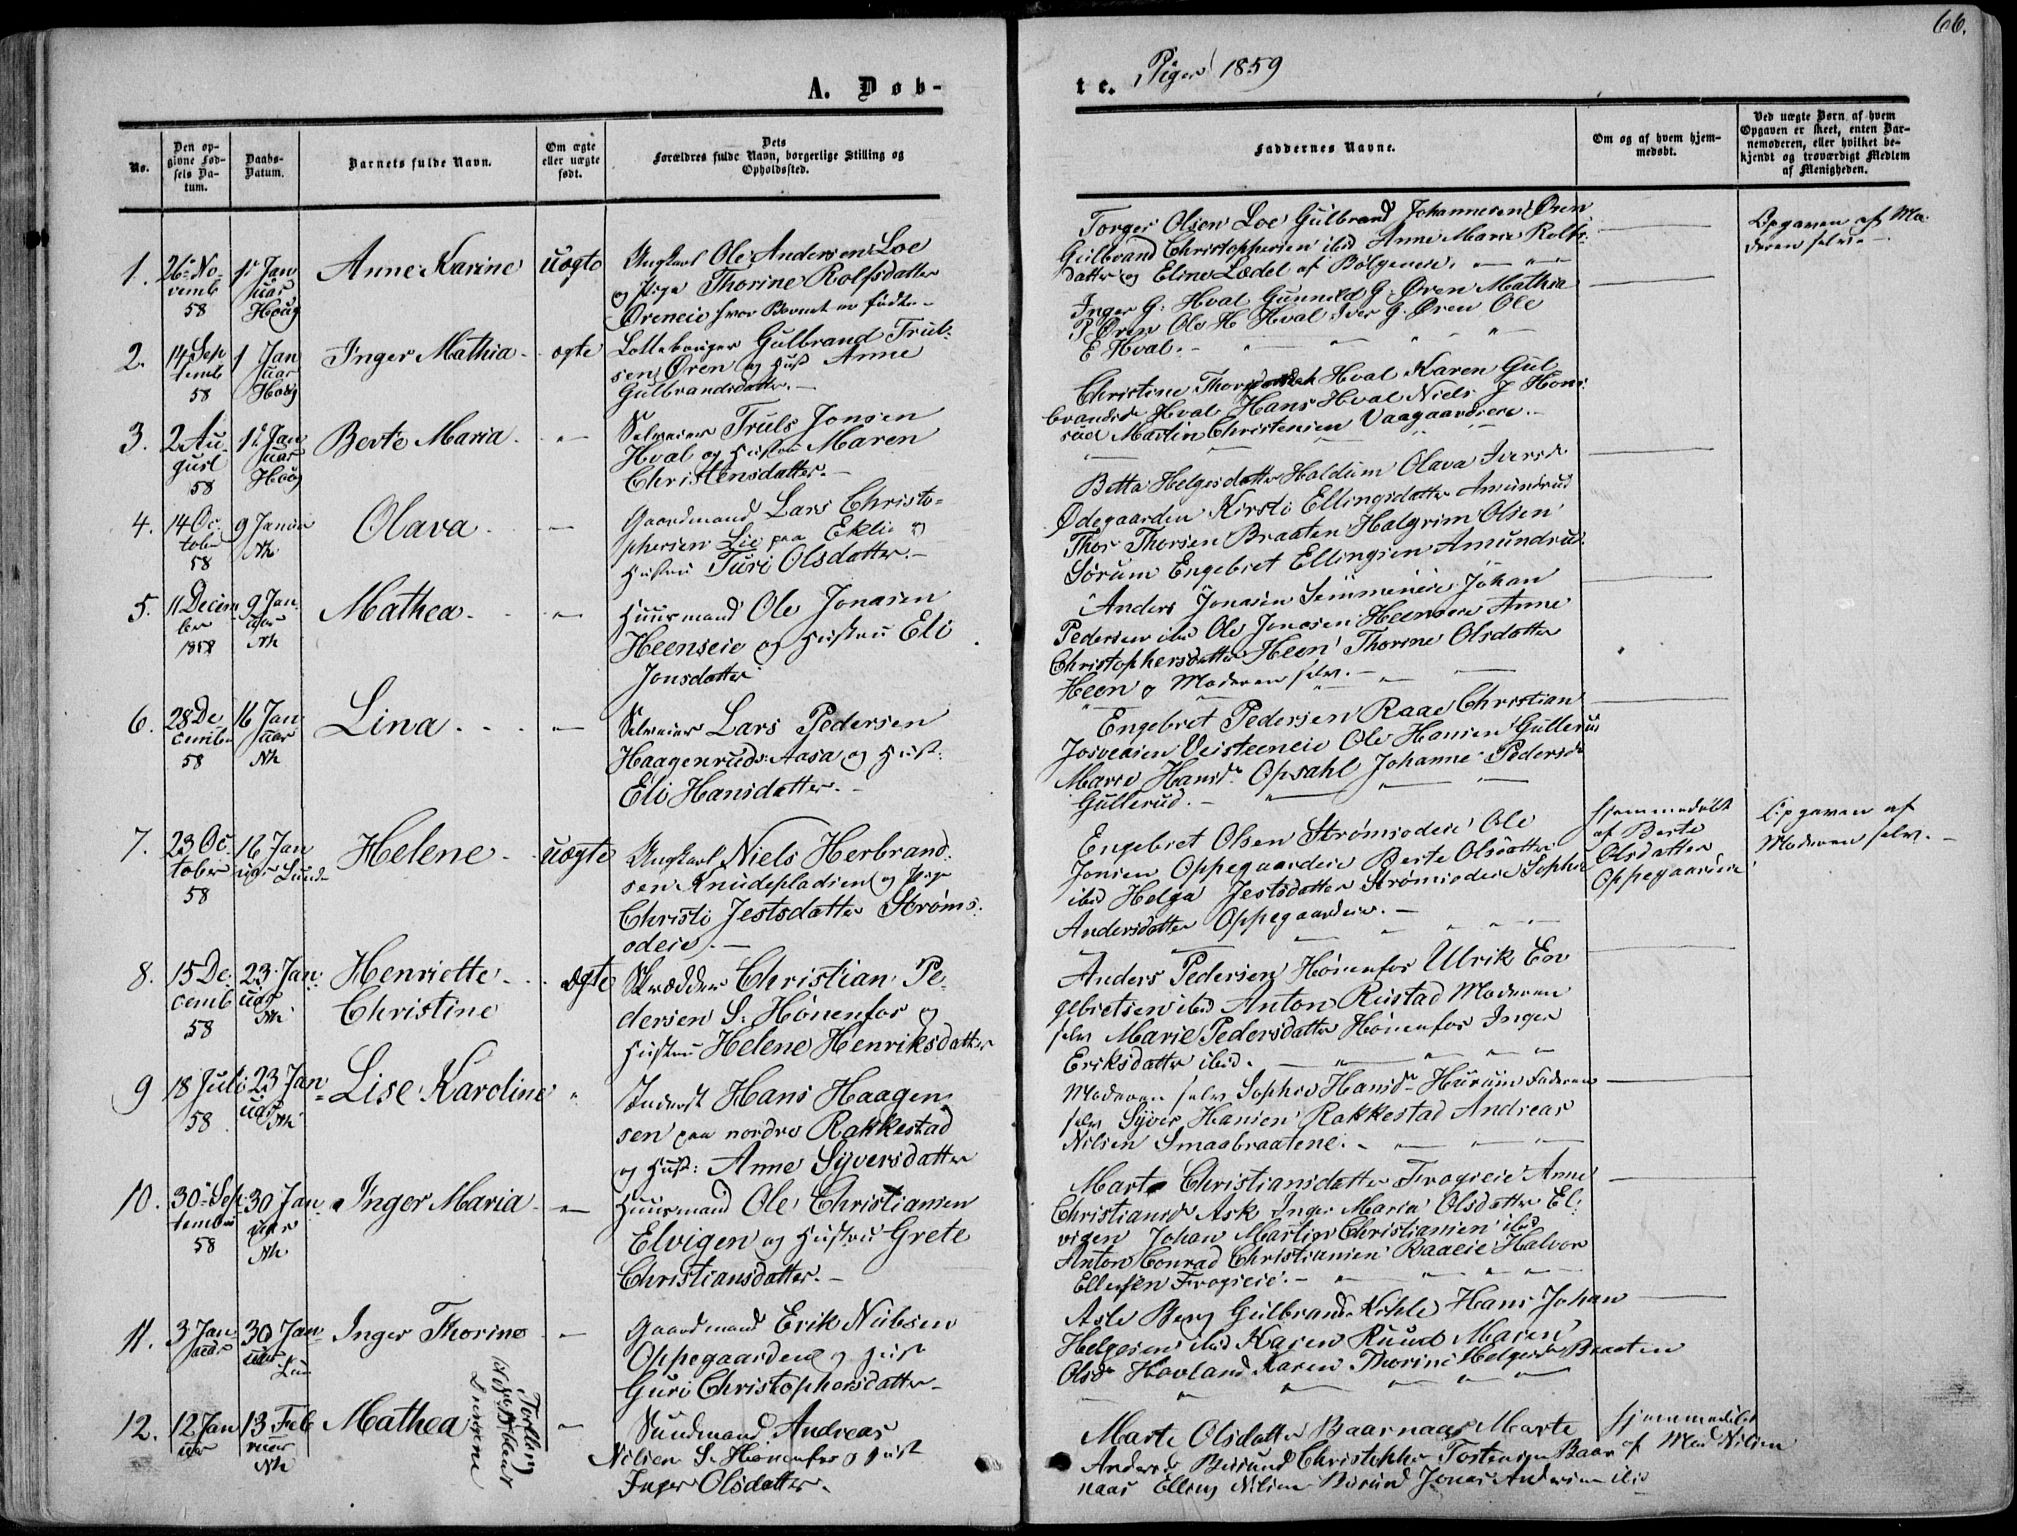 66.
A. Døb-
te. Piger 1859
No.
Den op-
givne Fød-
sels Da-
tum.
Daabs-
Datum.
Barnets fulde Navn.
Om ægte
eller uægte
født.
Dets
Forældres fulde Navn, borgerlige Stilling og
Opholdssted.
Faddernes Navne.
Om og af hvem hjem-
medøbt.
Ved uægte Børn, af hvem
Opgaven er skeet, enten Bar-
nemoderen, eller hvilket be-
kjendt og troværdigt Medlem
af Menigheden.
1. 26 No-
vemb
58
1 Jan
uar
Houg
Anne Karine
uægte
Ungkarl Ole Andersen Loe
og Pige Thorine Rolfsdatter
Øreneie hvor Barnet er født.
Torger Olsen Loe Gulbrand Johannesen Øren
Gulbrand Christophersen ibid Anne Marie Rolfs-
datter og Eline Lædel af
Opgaven af Mo-
deren selv.
2. 14 Sep
temb
58
1 Jan
uar
Houg
Inger Mathia
ægte
Gulbrand Trul-
sen Øren og Hust Anne
Gulbrandsdatter.
Inger G. Hval Gunnild G. Øren Mathia
P. Øren Ole H Hval Iver G. Øren Ole
E Hval.
3. 2 Au-
gust
58
1 Jan
uar
Houg
Berte Maria
Selveier Truls Jonsen
Hval og Hustru Maren
Christensdatter.
Christine Hval Karen Gul
brandsd Hval Hans Hval Niels J Hons
rud Martin Christensen
4. 14 Oc
tober
58
9 Januar
Nh
Olava
Gaardmand Lars Christo-
phersen Lie paa Eklie og
Hustru Turi Olsdatter.
Bitta Helgesdatter Haldum Olava Iversd
Ødegaarden Kirsti Ellingsdatter Amundrud
Thor Thorsen Braaten Halgrim Olsen
Sørum Engebret Ellingsen Amundrud
5. 11 Decem
ber
1858
9 Jan
uar
Nh
Mathea
Huusmand Ole Jonasen
Heenseie og Hustru Eli
Jonsdatter
Anders Jonasen Johan
Pedersen ibid Ole Jonasen Anne
Christophersdatter Heen Thorine Olsdatter
Heen og Moderen selv.
6. 28 De
cember
58
16 Jan
uar
Nh
Lina
Selveier Lars Pedersen
Haagenruds Aasa og Hust:
Eli Hansdatter.
Engebret Pedersen Raae Christian
Veisteeneie Ole Hansen Gullerud
Marie Hansd Opsahl Johanne Pedersd
Gullerud.
7. 23 Oc
tober
58
16 Jan
uar
Helene
uægte
Ungkarl Niels Herbrand-
sen Knudspladsen og Pige
Christi Jestsdatter Strøms-
odeie.
Engebret Olsen Strømsodeie Ole
Jonsen Oppegaardeie Berte Olsdatter
ibid Helga Jestsdatter Strømsodeie Sophie
Andersdatter Oppegaardeie.
Hjemmedøbt
af Berte
Olsdatter
Oppegaardeie
Opgaven af
Moderen selv.
8. 15 De
cemb
58
23 Jan
uar
Nh
Henriette
Christine
ægte
Skrædder Christian Pe-
dersen S. Hønenfos og
Hustru Helene Henriksdatter
Anders Pedersen Hønenfos Ulrik En
gebretsen ibid Anton Rustad Moderen
selv Marie Pedersdatter Hønenfos Inger
Eriksdatter ibid.
9 18 Juli
58
23 Jan
uar
Nh
Lise Karoline
Inderst Hans Haagen
sen paa nordre Rakkestad
og Hust: Anne Syversdatter
Moderen selv Sophie Hansd Hurum Faderen
selv Syver Hansen Rakkestad Andreas
Nilsen Smaabraatene.
10. 30 Sep
tember
58
30 Jan
uar
Nh
Inger Maria
Huusmand Ole Christiansen
Elvigen og Hustru Grete
Christiansdatter.
Marte Christiansdatter Frogseie Anne
Christiansd Ask Inger Maria Olsdatter El-
vigen Johan Martin Christiansen ibid
Anton Conrad Christiansen Raaeie Halvor
Ellefsen Frogseie.
11. 3 Jan
uar
30 Jan
uar
Inger Thorine
Gaardmand Erik Nubsen
Oppegaarden og Hust
Guri Christophersdatter
Asle Berg Gulbrand Kihle Hans Johan
Helgesen ibid Karen Ruud Maren
Olsd Hovland Karen Thorine Helgesd Braaten
12. 12 Jan
uar
13 Feb
ruar
Nh
Mathea
Andreas
Nilsen S. Hønenfos og Hust
Inger Olsdatter.
Marte Olsdatter Baarnaas Marte
Andersd Busund Christopher Tostensen Baar
naas Elling Nilsen Busund Jonas Andersen ibid
Hjemmedøbt
af Nilsen